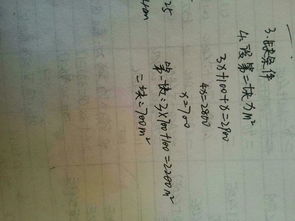 25
3. 缺条件
4. 设第二块为xm²
3x+100+x=2900
4x=2800
x=700
第一块:3×700+100=2200m²
二块:700m²